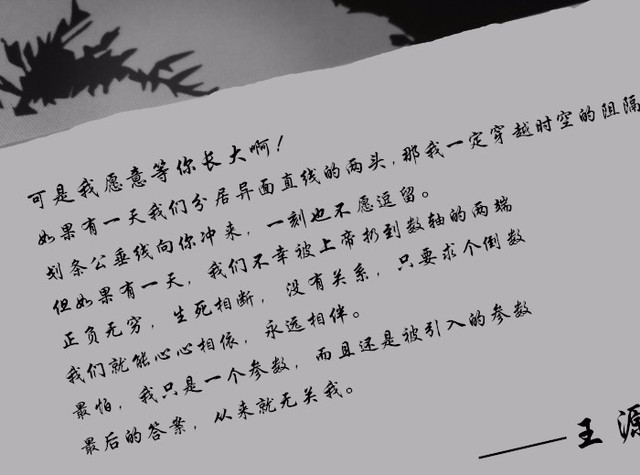 可是我愿意等你长大啊！
如果有一天我们分居异面直线的两头，那我一定穿越时空的阻隔
划条公垂线向你冲来，一刻也不愿逗留。
但如果有一天，我们不幸被上帝扔到数轴的两端
正负无穷，生死相断，没有关系，只要求个倒数
我们就能心心相依，永远相伴。
最怕，我只是一个参数，而且还是被引入的参数
最后的答案，从来就无关我。
——王源